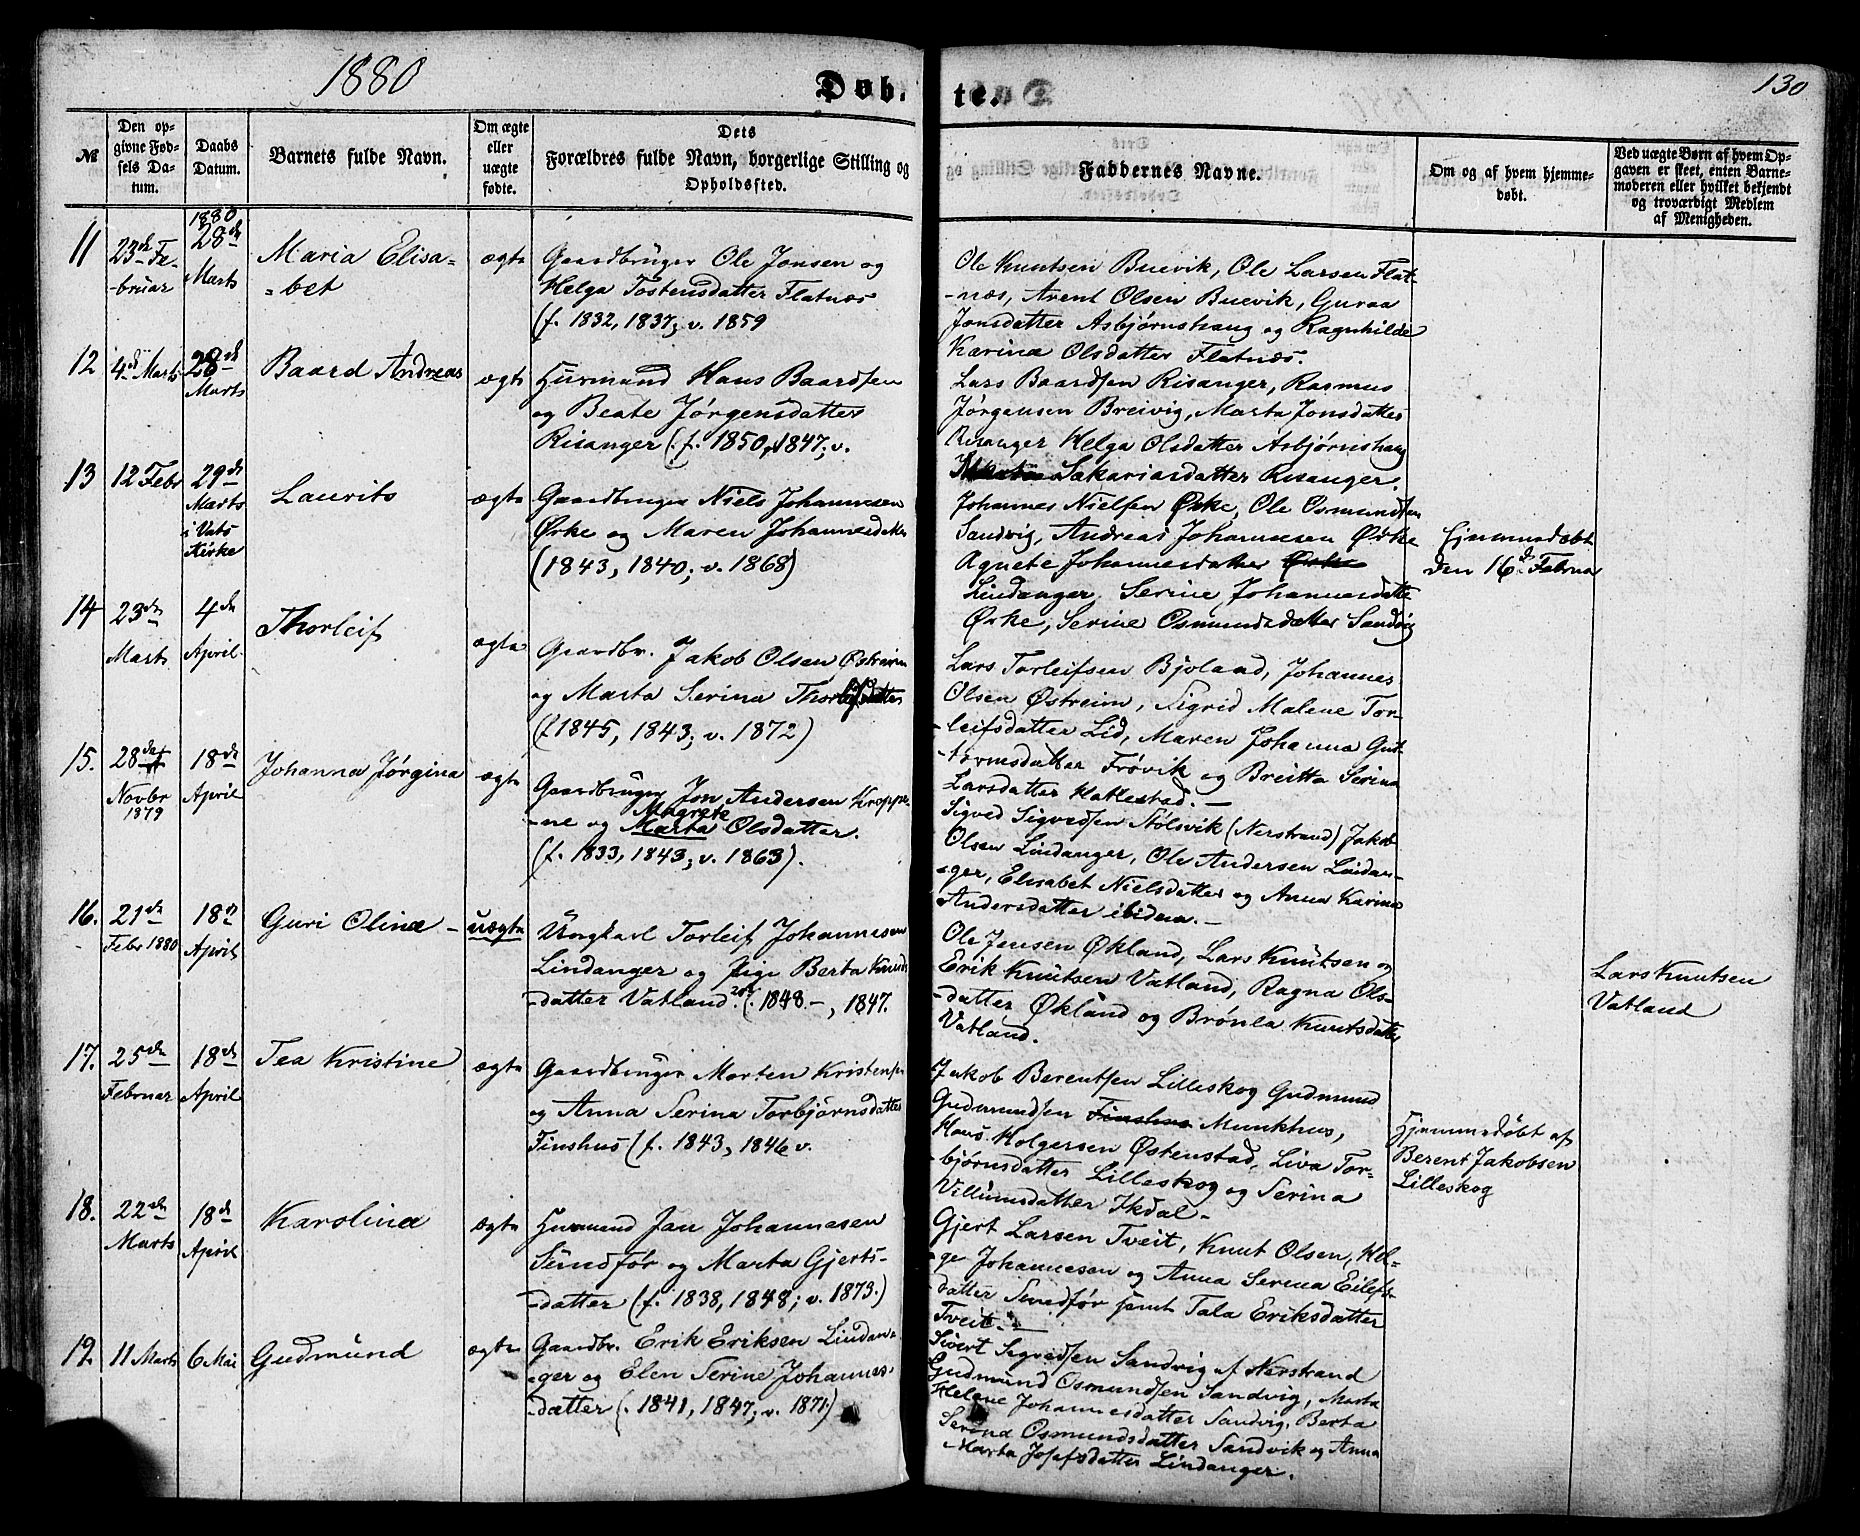 1880
Døb-
te.
130
№
Den op-
givne Fød-
sels Da-
tum.
Daabs
Datum.
Barnets fulde Navn.
Om ægte
eller
uægte
fødte.
Dets
Forældres fulde Navn, borgerlige Stilling og
Opholdssted.
Faddernes Navne.
Om og af hvem hjemme-
døbt.
Ved uægte Børn af hvem Op-
gaven er skeet, enten Barne-
moderen eller hvilket bekjendt
og troværdigt Medlem
af Menigheden.
11
23de Fe-
-bruar
1880
28de
Marts
Maria Elisa-
-bet
ægte
Gaardbruger Ole Jonsen og
Helga Tostensdatter Flatnæs
(f. 1832, 1837; v. 1859
Ole Knutsen Buevik, Ole Larsen Flat-
-næs, Arent Olsen Buevik, Guraa
Jonsdatter Asbjørnshaug og Ragnhilde
Karina Olsdatter Flatnæs.
12
4de Marts
28de
Marts
Baard Andreas
ægte
Huusmand Hans Baardsen
og Beate Jørgensdatter
Risanger (f. 1850, 1847; v.
Lars Baardsen Risanger, Rasmus
Jørgensen Breivig, Marta Jonsdatter
Risanger Helga Olsdatter Asbjørnshaug
Sakariasdatter Risanger.
13
12 Febr
29de
Marts
i Vats
Kirke
Laurits
ægte
Gaardbruger Niels Johannesen
Ørke og Maren Johannesdatter
(1843, 1840; v. 1868)
Johannes Nielsen Ørke, Ole Osmundsen
Sandvig, Andreas Johannesen Ørke
Agnete Johannesdatter Ørke
Lindanger, Serine Johannesdatter
Ørke, Serine Osmundsdatter Sandvig
Hjemmedøbt
den 16de Februar
14
23de
Marts
4de
April
Thorleif
ægte
Gaardbr. Jakob Olsen Østreim
og Marta Serina Thorleifsdatter
(f 1845, 1843; v. 1872)
Lars Torleifsen Bjoland, Johannes
Olsen Østreim, Sigrid Malene Tor-
-leifsdatter Lid, Maren Johanna Gut-
-tormsdatter Frøvik og Breitta Serina
Larsdatter Hatlestad. —
15.
28de
Novbr
1879
18de
April
Johanna Jørgina
ægte
Gaardbruger Jon Andersen Kroppe-
Magrete
-ne og Marta Olsdatter.
(f. 1833, 1843; v. 1863).
Sigved Sigvedsen Stølsvik (Nerstrand) Jakob
Olsen Lindanger, Ole Andersen Lindan-
-ger, Elisabet Nielsdatter og Anna Karina
Andersdatter ibidem. —
16.
21de
Febr 1880
18de
April
Guri Olina —
uægte
Ungkarl Torleif Johannesen
Lindanger og Pige Berta Knuds-
-datter Vatland. (f. 1848 —, 1847.
Ole Jensen Økland, Lars Knutsen og
Erik Knutsen Vatland, Ragna Ols-
-datter Økland og Brønla Knutsdatter
Vatland.
Lars Knutsen
Vatland
17.
25de
Februar
18de
April
Tea Kristine
ægte
Gaardbruger Morten Kristensen
og Anna Serina Torbjørnsdatter
Finshus (f. 1843, 1846 v.
Jakob Berentsen Lilleskog Gudmund
Gudmundsen Finshus Munkhus,
Hans Holgersen Østenstad, Liva Tor-
-bjørnsdatter Lilleskog og Serina
Villumsdatter Ikdal —
Hjemmedøbt af
Berent Jakobsen
Lilleskog
18.
22de
Marts
18de
April
Karolina
ægte
Huusmand Jan Johannesen
Sundfør og Marta Gjerts-
-datter (f. 1838, 1848; v. 1873.)
Gjert Larsen Tveit, Knut Olsen, Hel-
-ge Johannesen og Anna Serena Eilefs-
-datter Sundfør samt Tala Eriksdatter
Tveit. —
19.
11 Marts
6 Mai
Gudmund
ægte
Gaardbr. Erik Eriksen Lindan-
-ger og Elen Serine Johannes-
-datter (. 1841, 1847; v. 1871)
Sivert Sigvedsen Sandvig af Nerstrand
Gudmund Osmundsen Sandvig, Marta
Helene Johannesdatter Sandvig, Berta
Serina Osmundsdatter Sandvik og Anna
Marta Josefsdatter Lindanger.